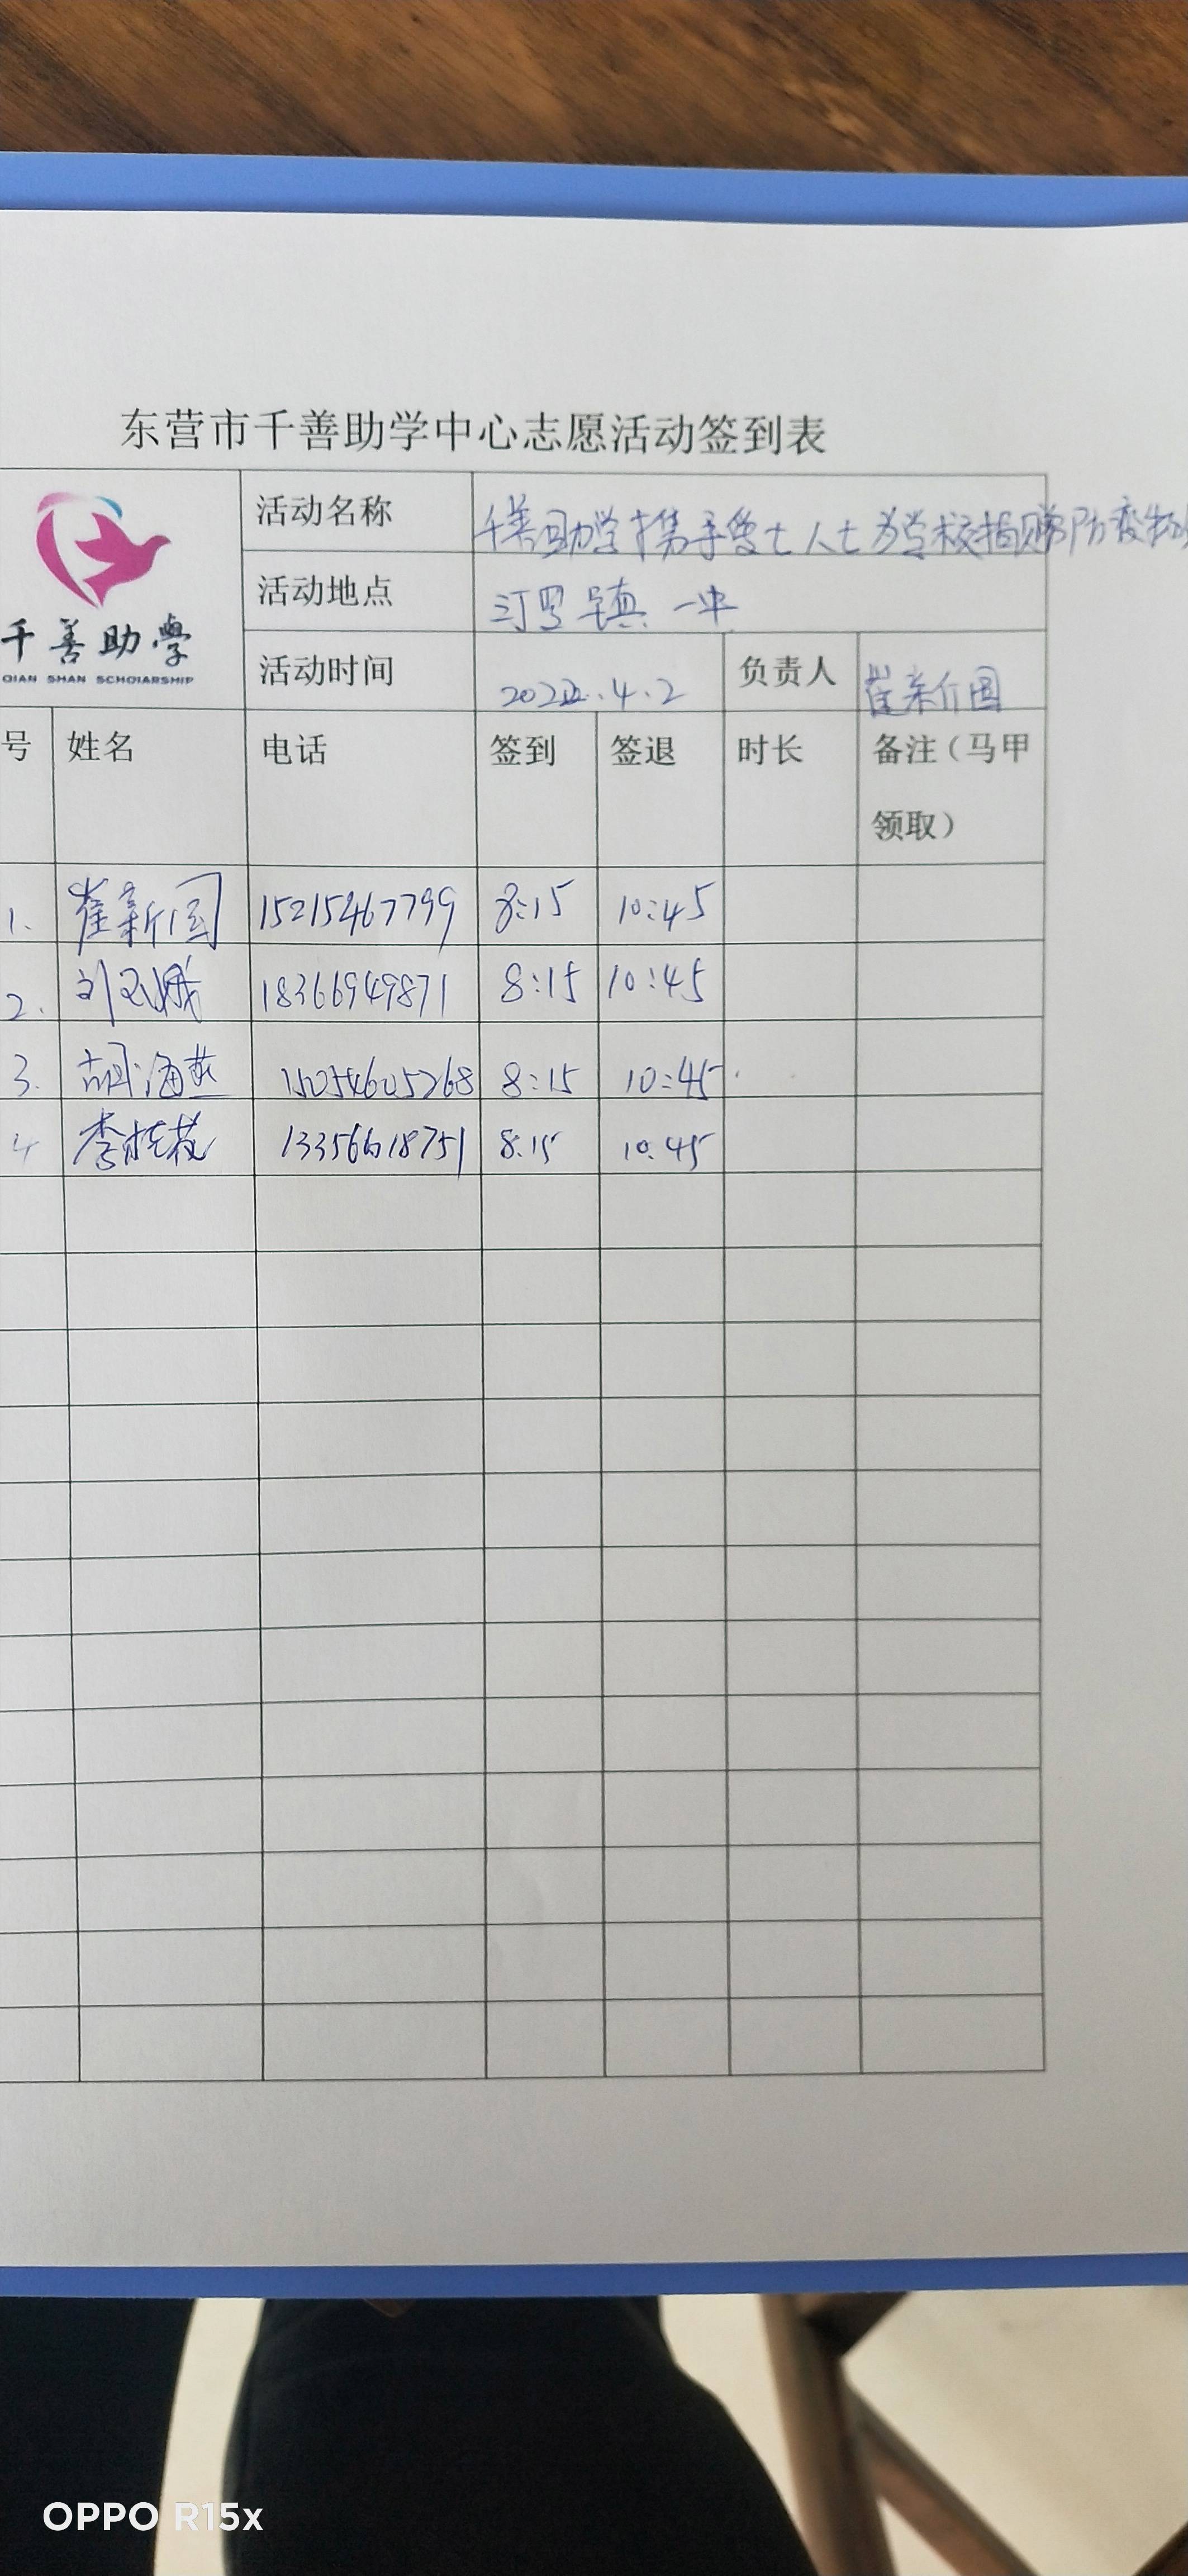 东营市千善助学中心志愿活动签到表
千善助學
QIAN SHAN SCHOLARSHIP
活动名称 千善助学携手爱士人士为学校捐赠防疫物
活动地点 汀罗镇一中
活动时间 2022.4.2 负责人 崔新国
号 姓名 电话 签到 签退 时长 备注（马甲
领取）
1. 崔新国 15215467799 8:15 10:45
2. 刘 18366949871 8:15 10:45
3. 胡海燕 15054605268 8:15 10:45
4 李桂花 13356618751 8:15 10:45
OPPO R15x